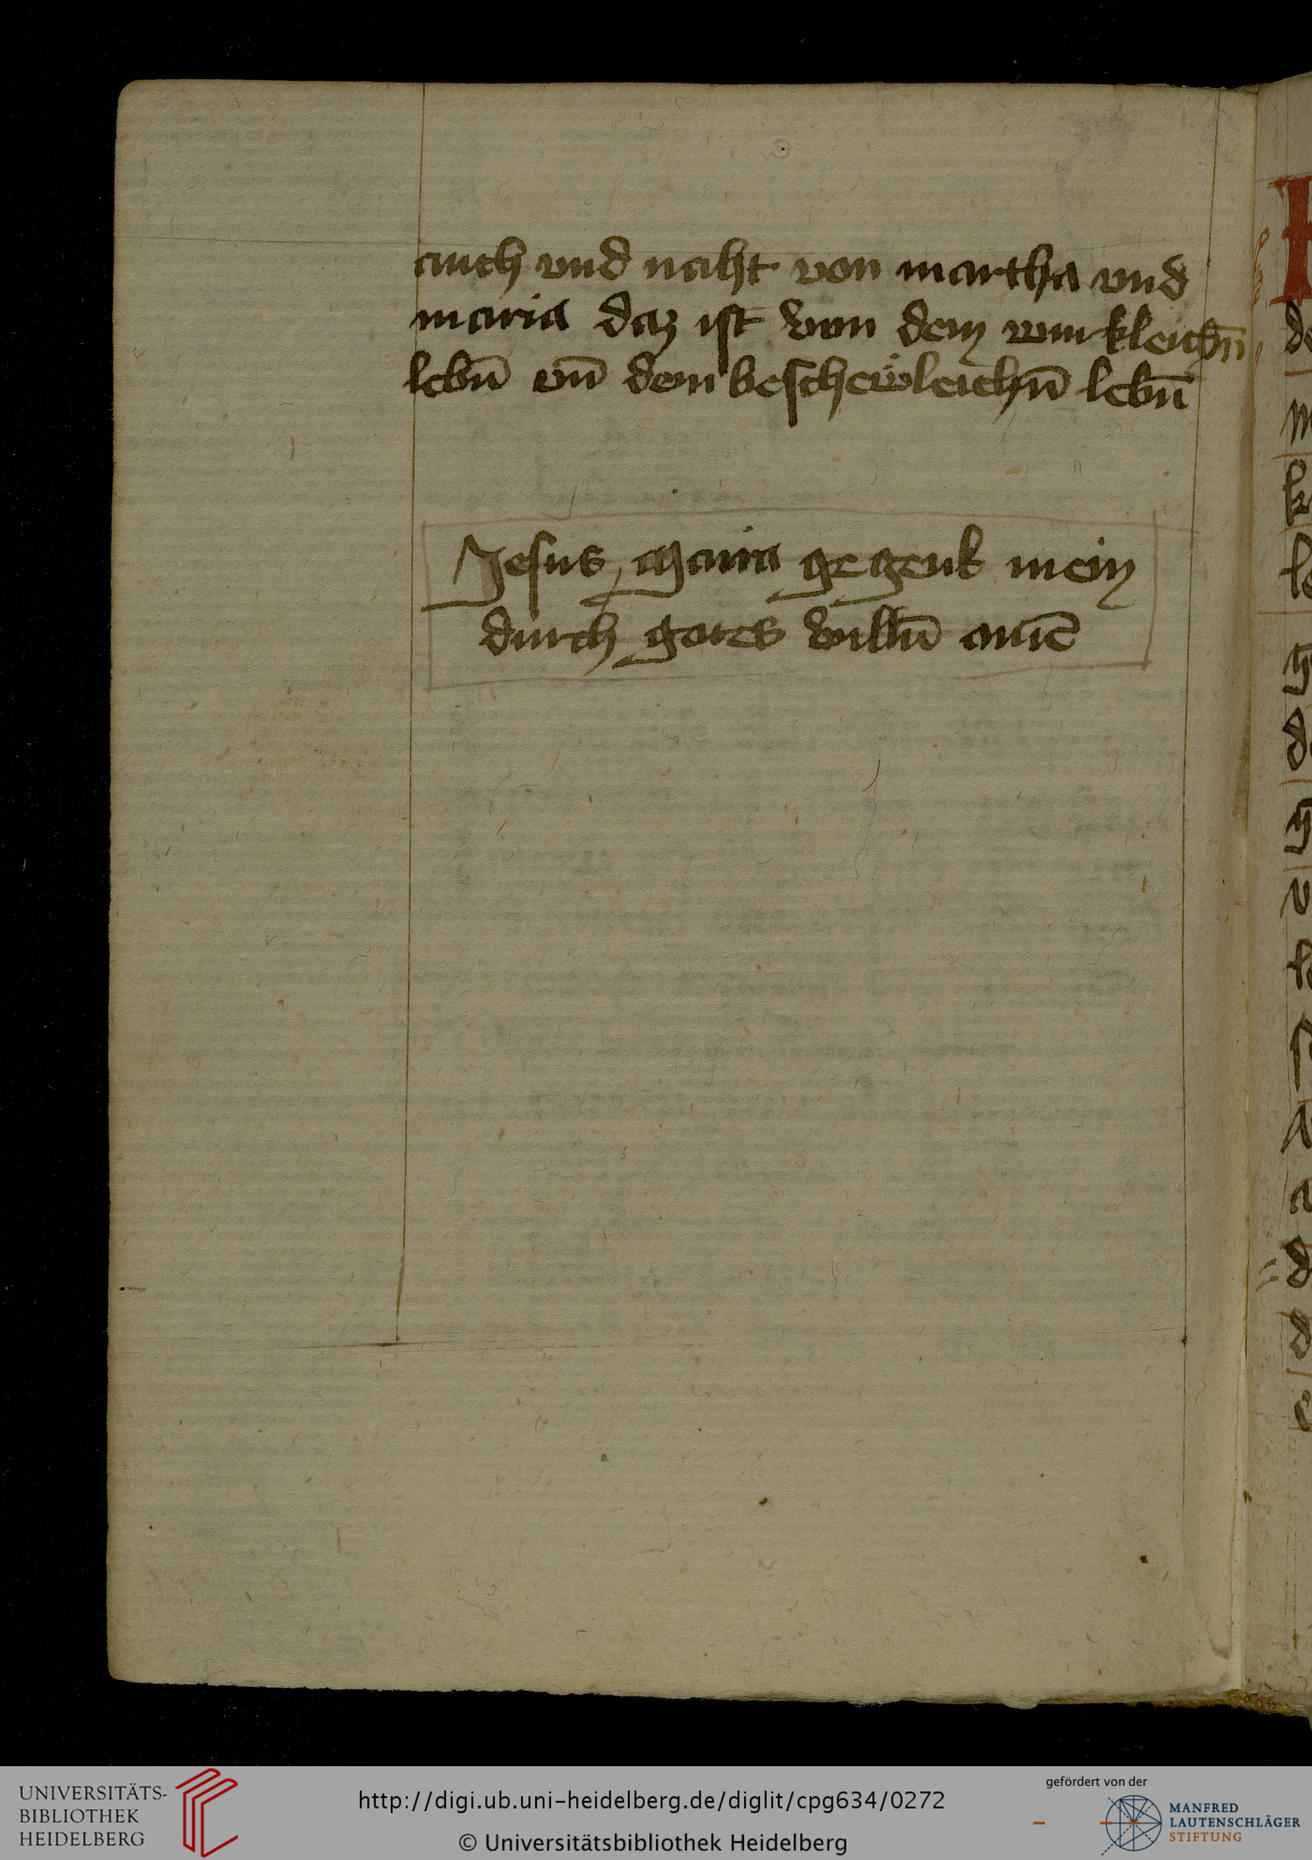 auch vnd naht von martha vnd
maria daz ist von dem wurkleichn̄
lebn̄ vn̄ dem beschewleichn̄ lebn̄
Jesus maria gegenk mein
durch gotes willn̄ amē
UNIVERSITÄTS-
BIBLIOTHEK
HEIDELBERG
http://digi.ub.uni-heidelberg.de/diglit/cpg634/0272
© Universitätsbibliothek Heidelberg
gefördert von der
MANFRED
LAUTENSCHLÄGER
STIFTUNG